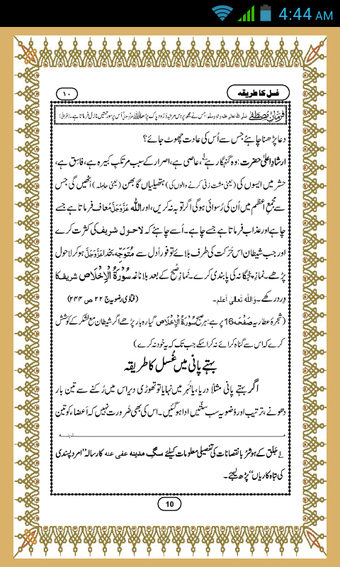 4:44 AM
غسل کا طریقہ
۱۰
فرمانِ مصطفےٰ
دعا پڑھنا چاہئے جس سے اُس کی عادت چھوٹ جائے؟
ارشادِ اعلیٰ حضرت: وہ گنہگار ہے، عاصی ہے، اصرار کے سبب مرتکبِ کبیرہ ہے، فاسق ہے،
حشر میں ایسوں کی (یعنی مشت زنی کرنے والوں کی) ہتھیلیاں گابھن (یعنی حاملہ) اٹھیں گی جس
سے مجمعِ اعظم میں اُن کی رُسوائی ہوگی اگر توبہ نہ کریں، اور اللہ عَزَّوَجَلَّ مُعاف فرماتا ہے جسے
چاہے اور عذاب فرماتا ہے جسے چاہے۔ اُسے چاہئے کہ لاحول شریف کی کثرت کرے
اور جب شیطان اِس حَرَکت کی طرف بلائے تو فوراً دل سے مُتَوَجِّہ بخدا عَزَّوَجَلَّ ہو کر لاحول
پڑھے۔ نَمازِ پنجگانہ کی پابندی کرے۔ نَمازِ صُبح کے بعد بلا ناغہ سُوْرَۃُ الْاِخْلَاص شریف کا
وِرد رکھے۔ وَاللہُ تعالیٰ اَعلم۔ (فتاوٰی رضویہ ج ۲۲ ص ۲۴۴)
(شجرۂ عطاریہ صَفْحَہ 16 پر ہے: ہر صبح سُوْرَۃُ الْاِخْلَاص گیارہ بار پڑھے اگر شیطان مع لشکر کے کوشش
کرے کہ اس سے گناہ کرائے نہ کرا سکے جب تک کہ یہ خود نہ کرے)
بہتے پانی میں غُسل کا طریقہ
اگر بہتے پانی مثلاً دریا، یا نہر میں نہایا تو تھوڑی دیر اس میں رُکنے سے تین بار
دھونے، ترتیب اور وُضو یہ سب سنّتیں ادا ہو گئیں۔ اس کی بھی ضَرورت نہیں کہ اَعضاء کو تین
۱؎ جَلق کے ہوشربا نقصانات کی تفصیلی معلومات کیلئے سگِ مدینہ عفی عنہ کا رسالہ "امرد پسندی
کی تباہ کاریاں" پڑھ لیجئے۔
10